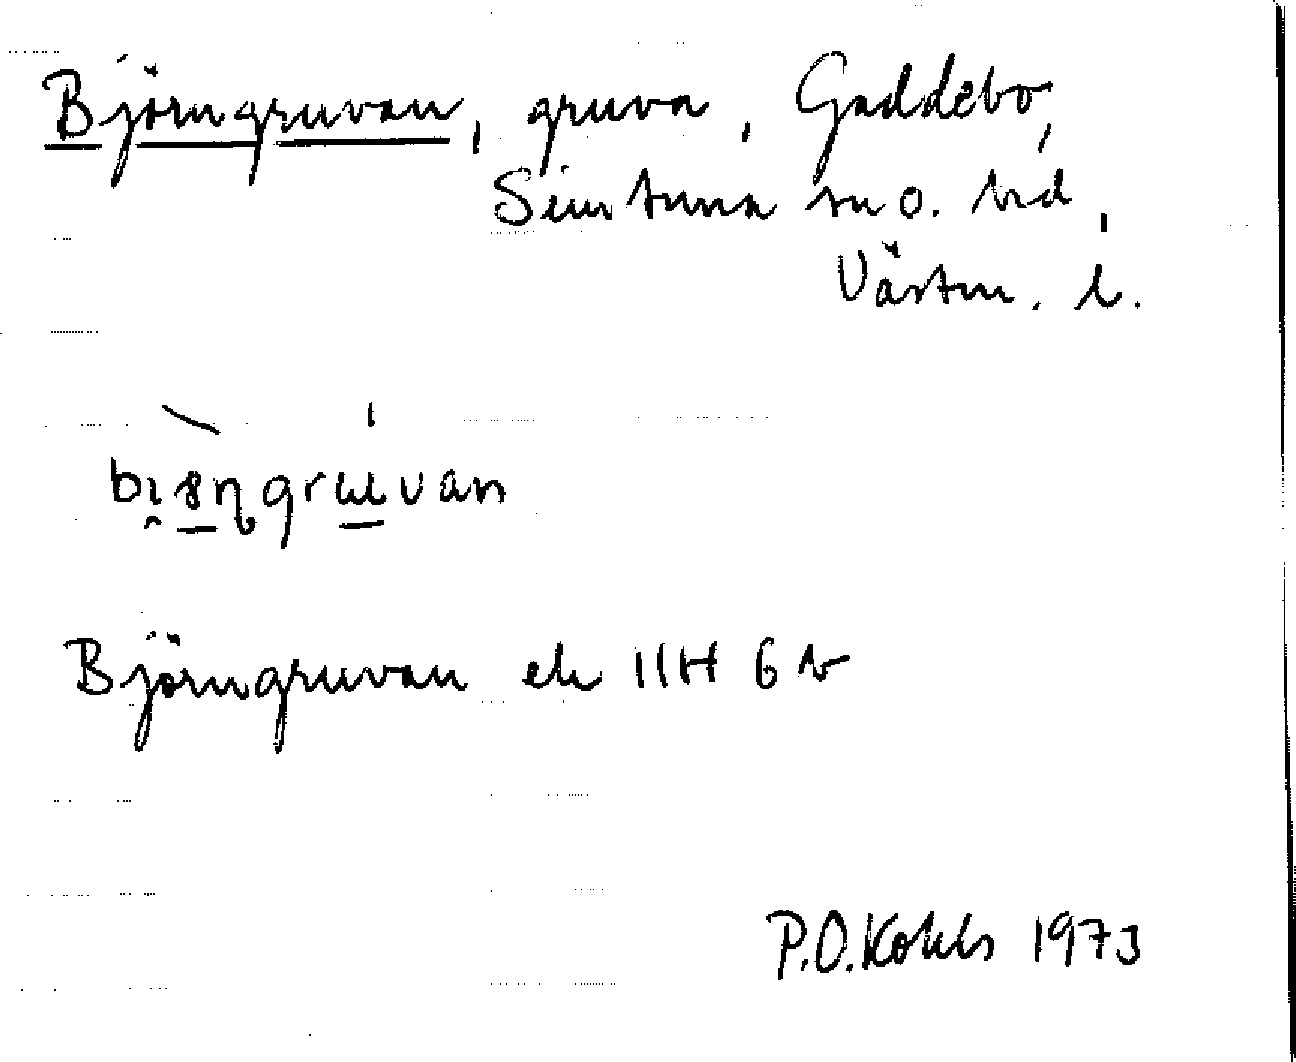 Björngruvan, gruva, Gaddebo,
Simtuna sn o. hd,
Västm. l.
Björngruvan ek 11H 6 b
P.O. Kohls 1973